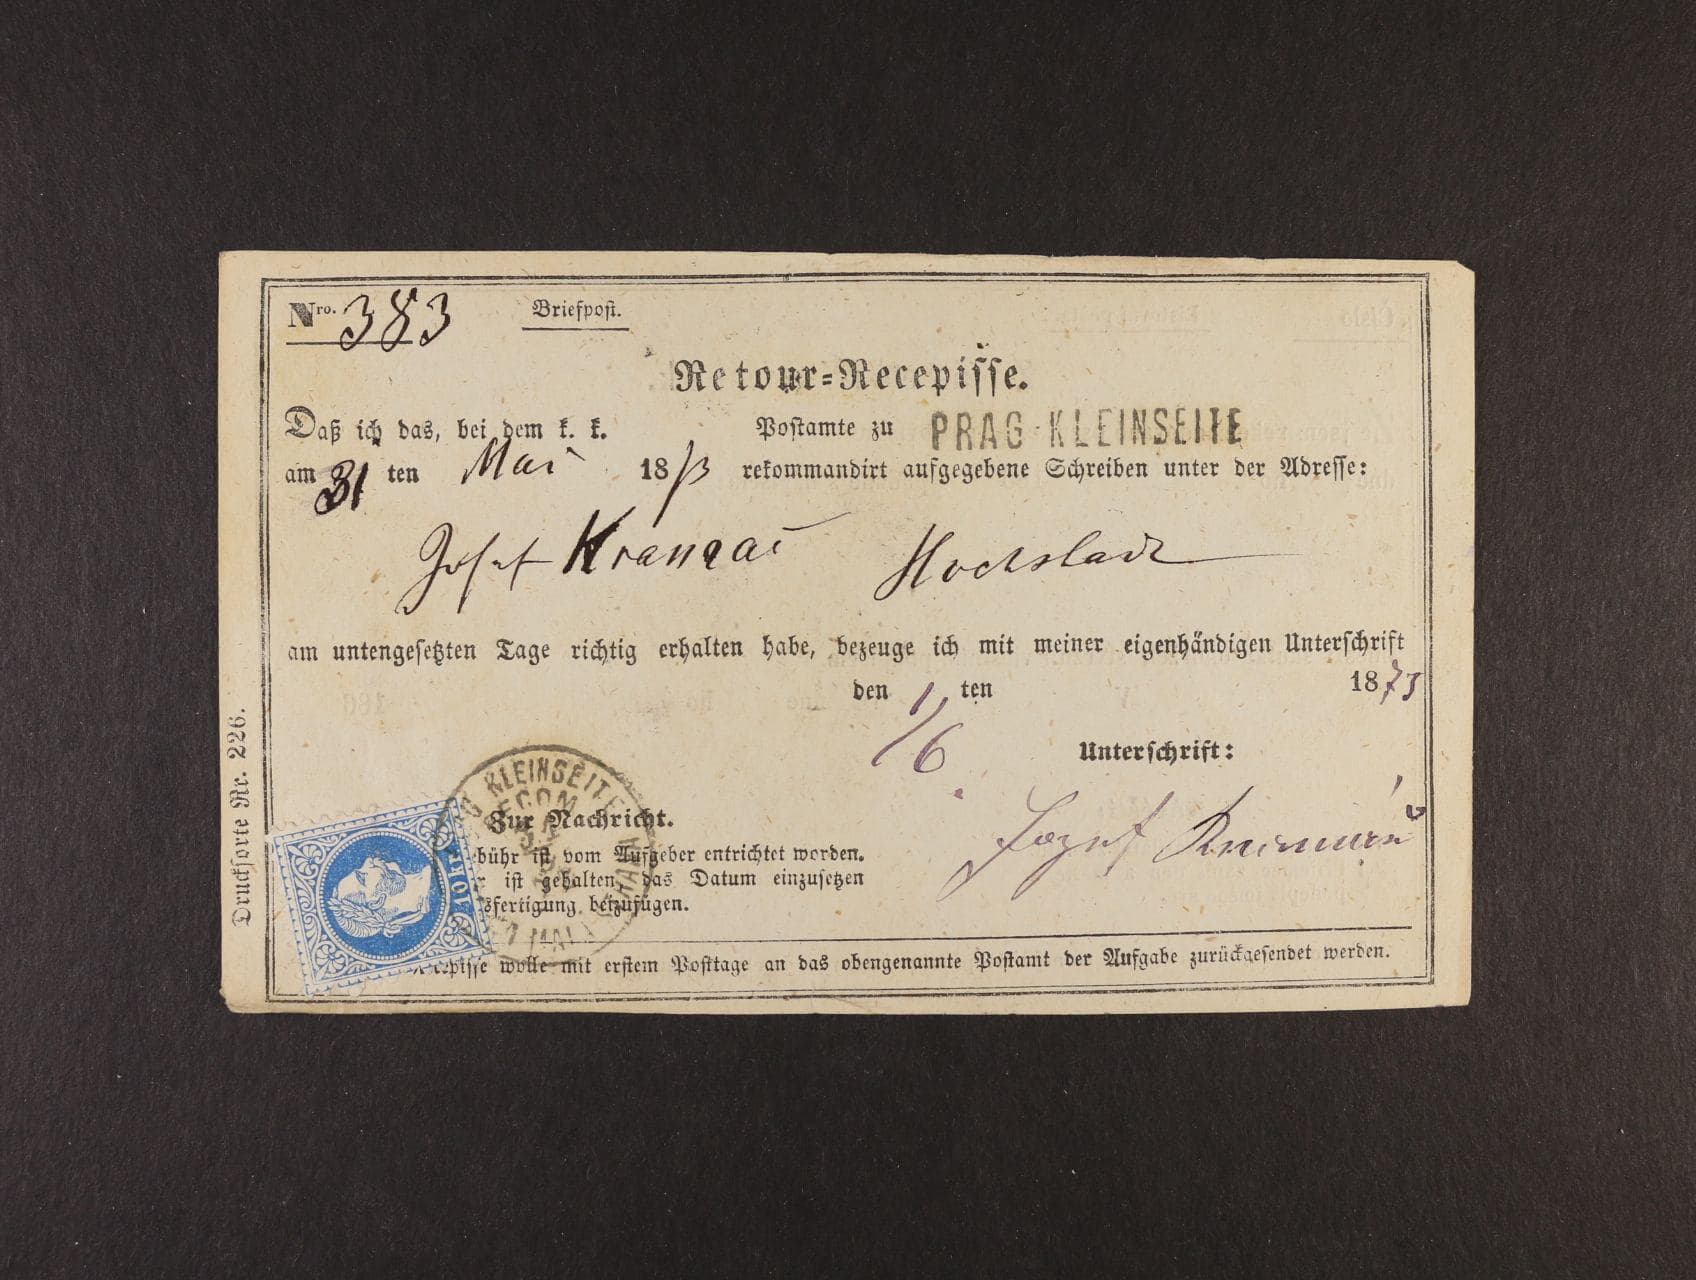 Nro. 383 Briefpost.
Retour=Recepisse.
Daß ich das, bei dem k. k. Postamte zu PRAG KLEINSEITE
am 31 ten Mai 1873 rekommandirt aufgegebene Schreiben unter der Adresse:
Josef Hochstadt
am untengesetzten Tage richtig erhalten habe, bezeuge ich mit meiner eigenhändigen Unterschrift
den 1/6 ten 1873
Unterschrift:
Jozef
Zur Nachricht.
bühr ist vom Aufgeber entrichtet worden.
r ist gehalten das Datum einzusetzen
sfertigung beizufügen.
cepisse wolle mit erstem Posttage an das obengenannte Postamt der Aufgabe zurückgesendet werden.
Drucksorte Nr. 226.
G KLEINSEITE
RECOM
MAI
10 KR